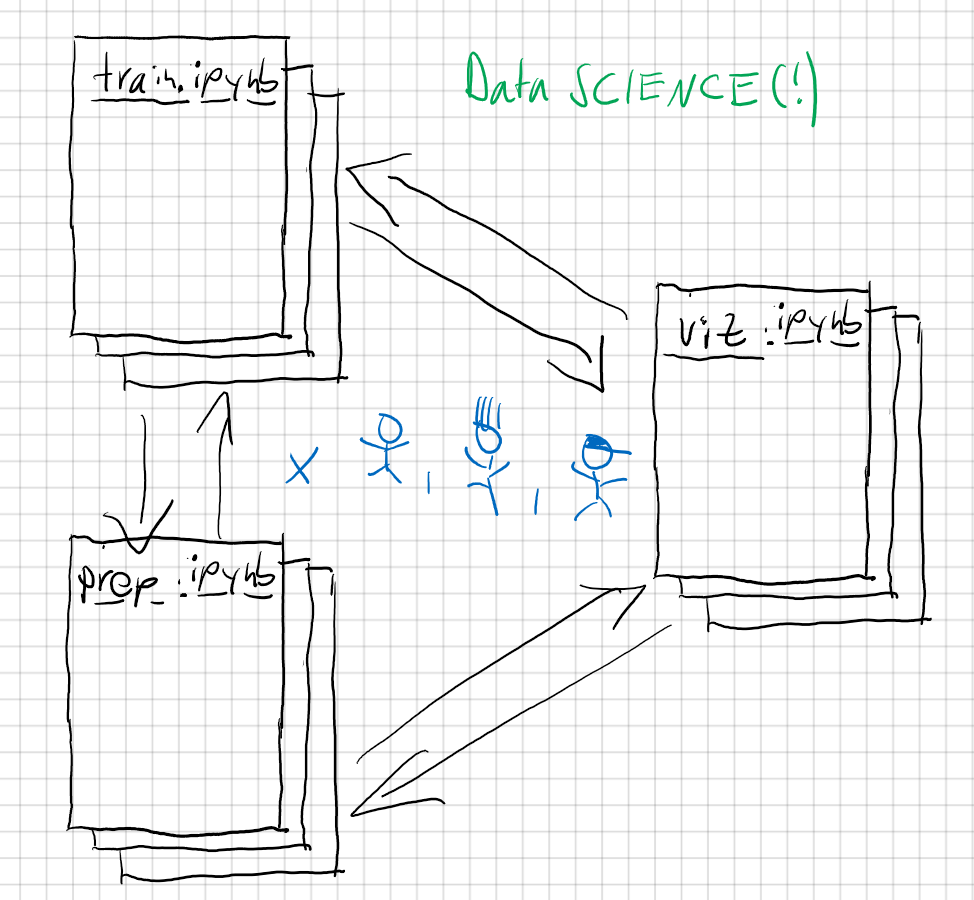 train.ipynb
Data SCIENCE(!)
viz.ipynb
x , ,
prep.ipynb